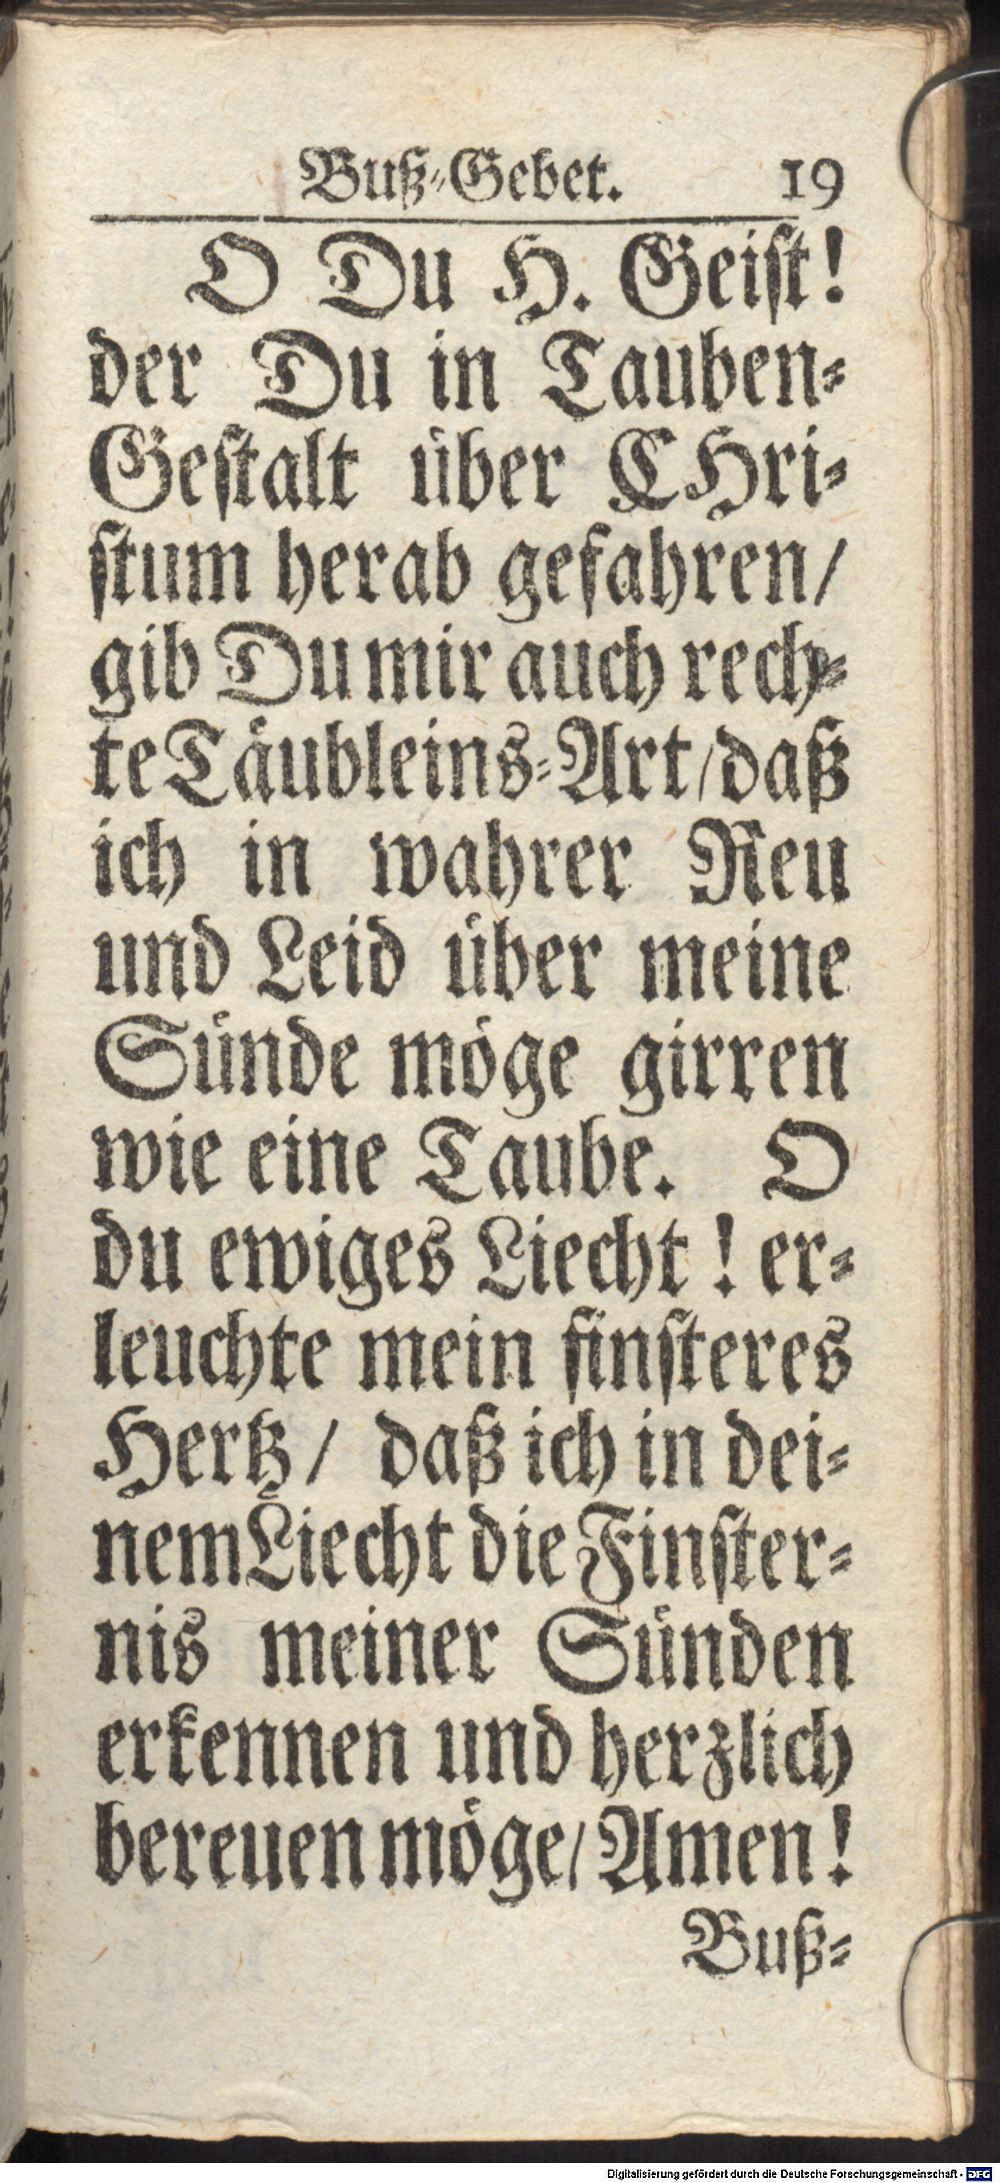 Buß-Gebet. 19
O Du H. Geist!
der Du in Tauben-
Gestalt über CHri-
stum herab gefahren/
gib Du mir auch rech-
te Täubleins-Art/ daß
ich in wahrer Reu
und Leid über meine
Sünde möge girren
wie eine Taube. O
du ewiges Liecht! er-
leuchte mein finsteres
Hertz/ daß ich in dei-
nem Liecht die Finster-
nis meiner Sünden
erkennen und herzlich
bereuen möge/ Amen!
Buß-
Digitalisierung gefördert durch die Deutsche Forschungsgemeinschaft - DFG